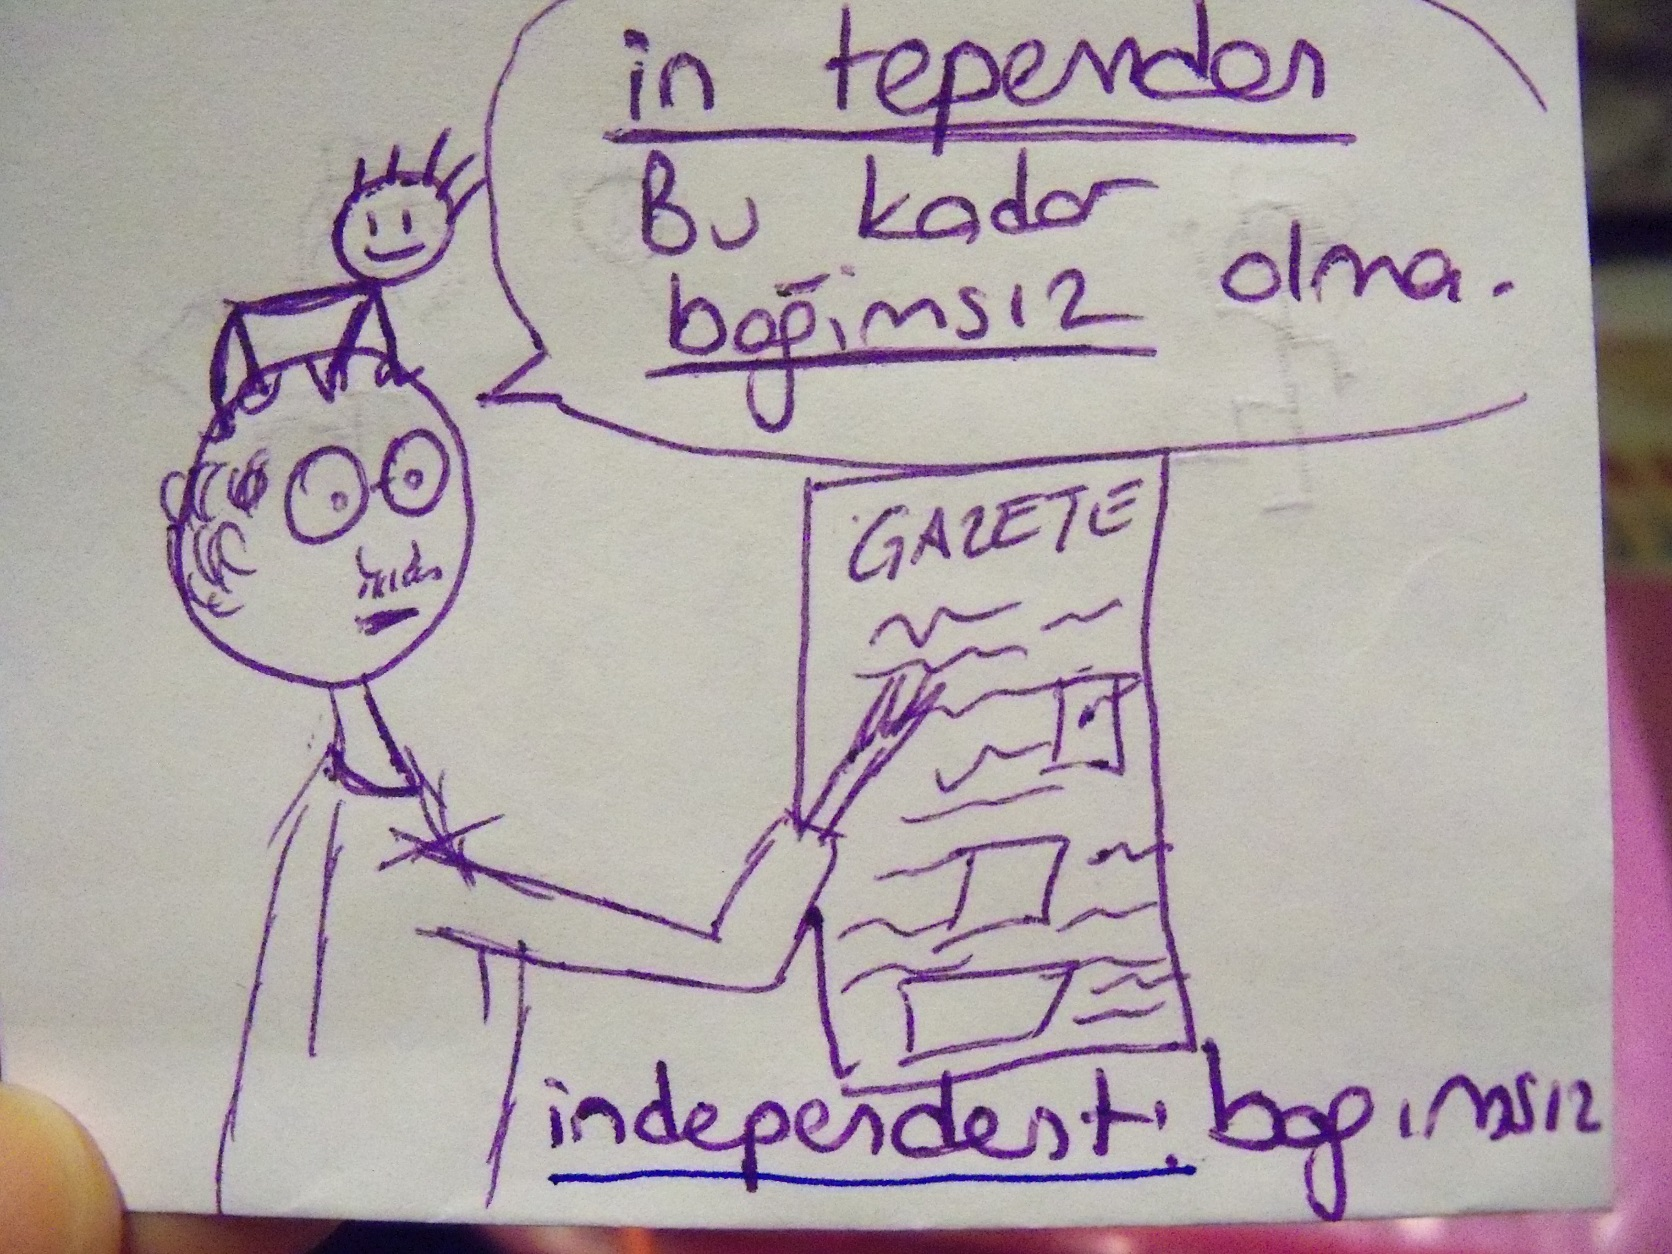 in tependen
Bu kadar
bağimsız olma.
GAZETE
independent: bağımsız